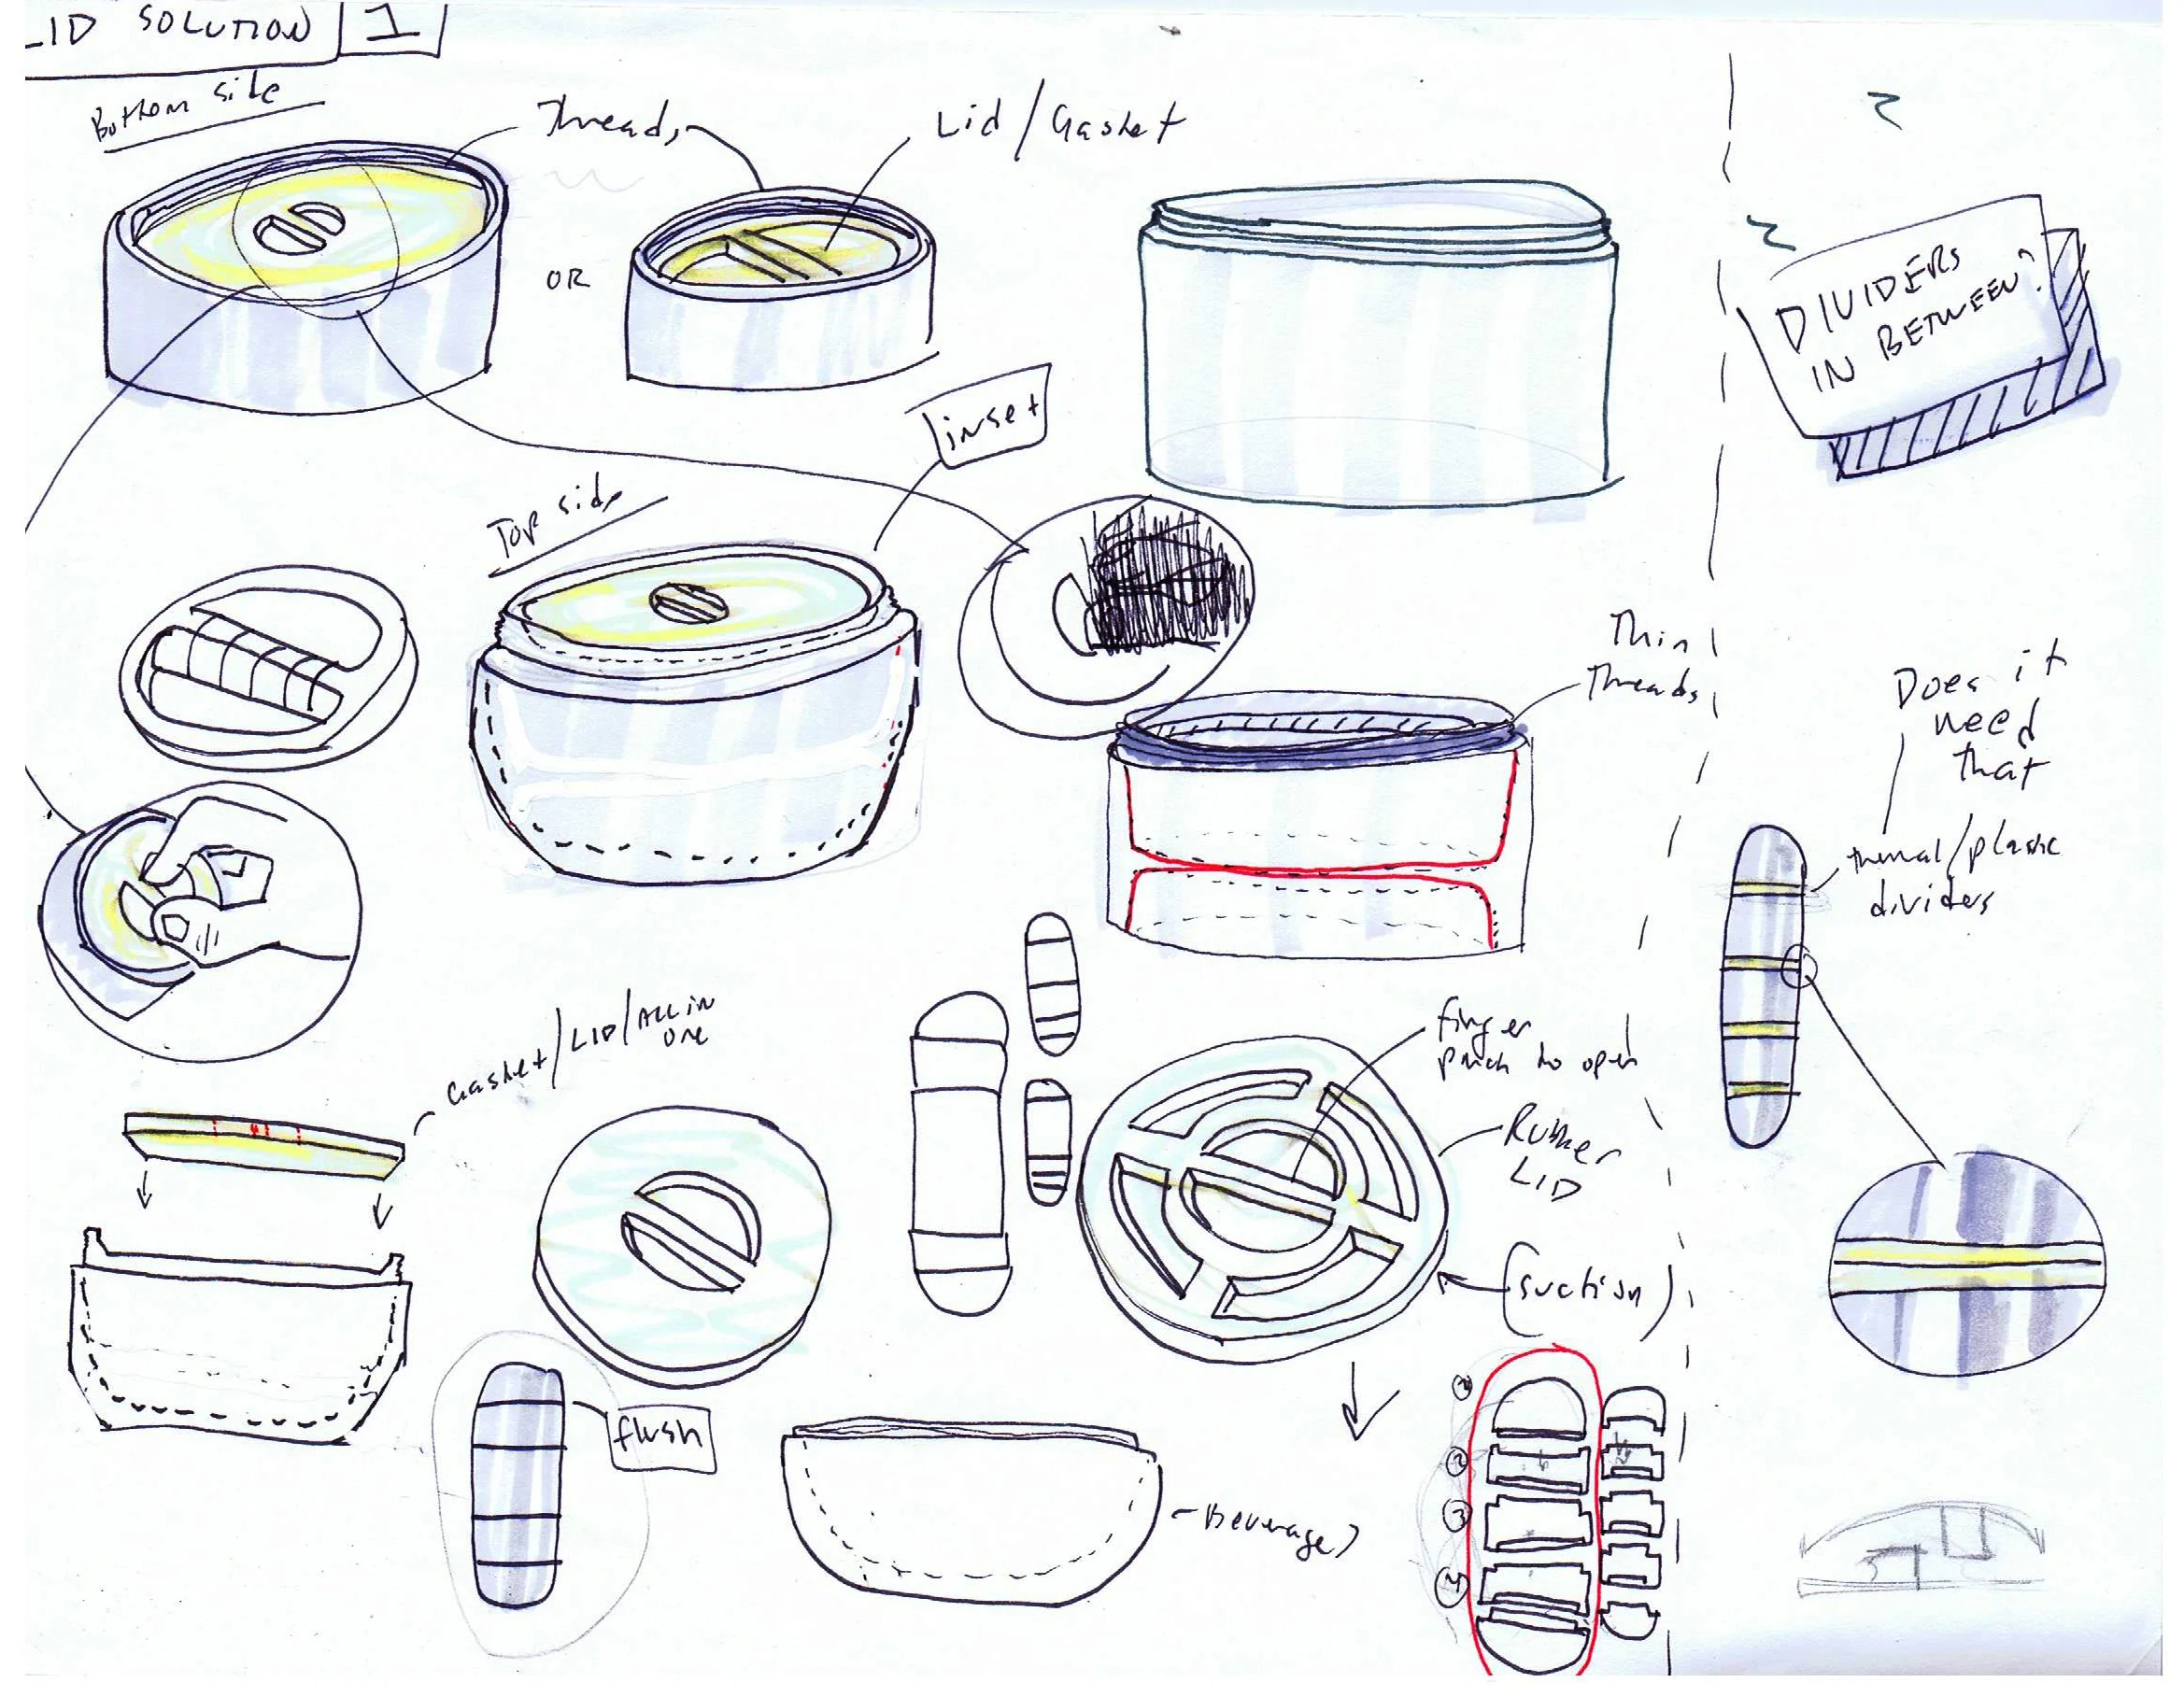 LID SOLUTION 1
Bottom side
Threads
Lid/Gasket
OR
inset
Top side
Thin
Threads
Gasket/LID/ALL IN
one
finger
pinch to open
Rubber
LID
(suction)
flush
Beverage)
1
2
3
4
DIVIDERS
IN BETWEEN?
Does it
need
that
thermal/plastic
dividers